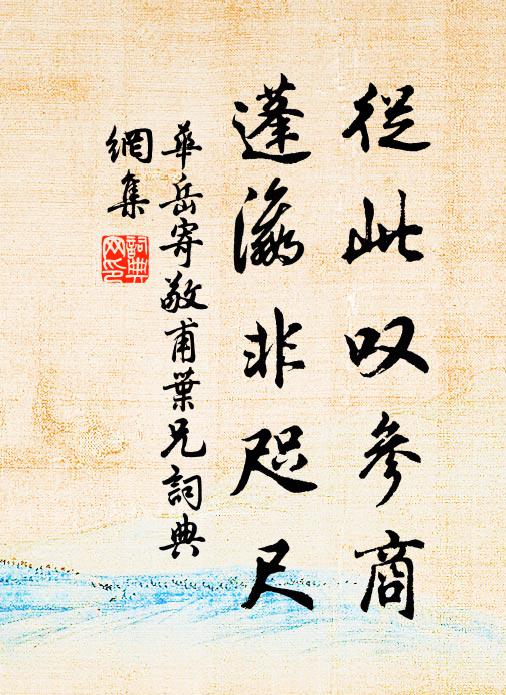 從此叹參商
蓬瀛非咫尺
華岳寄敬甫葉兄詞典
網集
詞典
网印